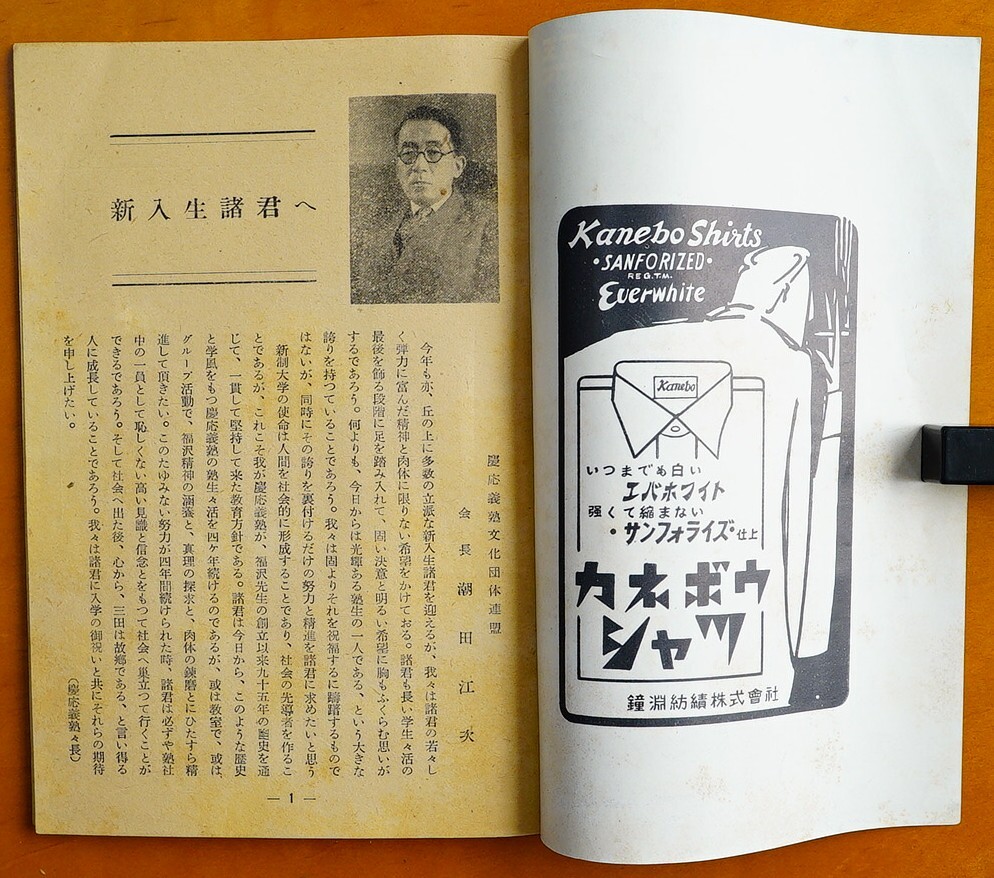 Kanebo Shirts
・SANFORIZED・
REG.T.M.
Everwhite
Kanebo
いつまでも白い
エバホワイト
強くて縮まない
・サンフォライズ・仕上
カネボウ
シャツ
鐘淵紡績株式會社
新入生諸君へ
慶応義塾文化団体連盟
会長 潮田江次
今年も亦、丘の上に多数の立派な新入生諸君を迎えるが、我々は諸君の若々し
く弾力に富んだ精神と肉体に限りない希望をかけておる。諸君も長い学生々活の
最後を飾る段階に足を踏み入れて、固い決意と明るい希望に胸もふくらむ思いが
するであろう。何よりも、今日からは光輝ある塾生の一人である、という大きな
誇りを持つていることであろう。我々は固よりそれを祝福するに躊躇するもので
はないが、同時にその誇りを裏付けるだけの努力と精進を諸君に求めたいと思う
新制大学の使命は人間を社会的に形成することであり、社会の先導者を作るこ
とであるが、これこそ我が慶応義塾が、福沢先生の創立以来九十五年の歴史を通
じて、一貫して堅持して来た教育方針である。諸君は今日から、このような歴史
と学風をもつ慶応義塾の塾生々活を四ケ年続けるのであるが、或は教室で、或は、
グループ活動で、福沢精神の涵養と、真理の探求と、肉体の錬磨とにひたすら精
進して頂きたい。このたゆみない努力が四年間続けられた時、諸君は必ずや塾社
中の一員として恥しくない高い見識と信念とをもつて社会へ巣立つて行くことが
できるであろう。そして社会へ出た後、心から、三田は故郷である、と言い得る
人に成長していることであろう。我々は諸君に入学の御祝いと共にそれらの期待
を申し上げたい。
（慶応義塾々長）
— 1 —